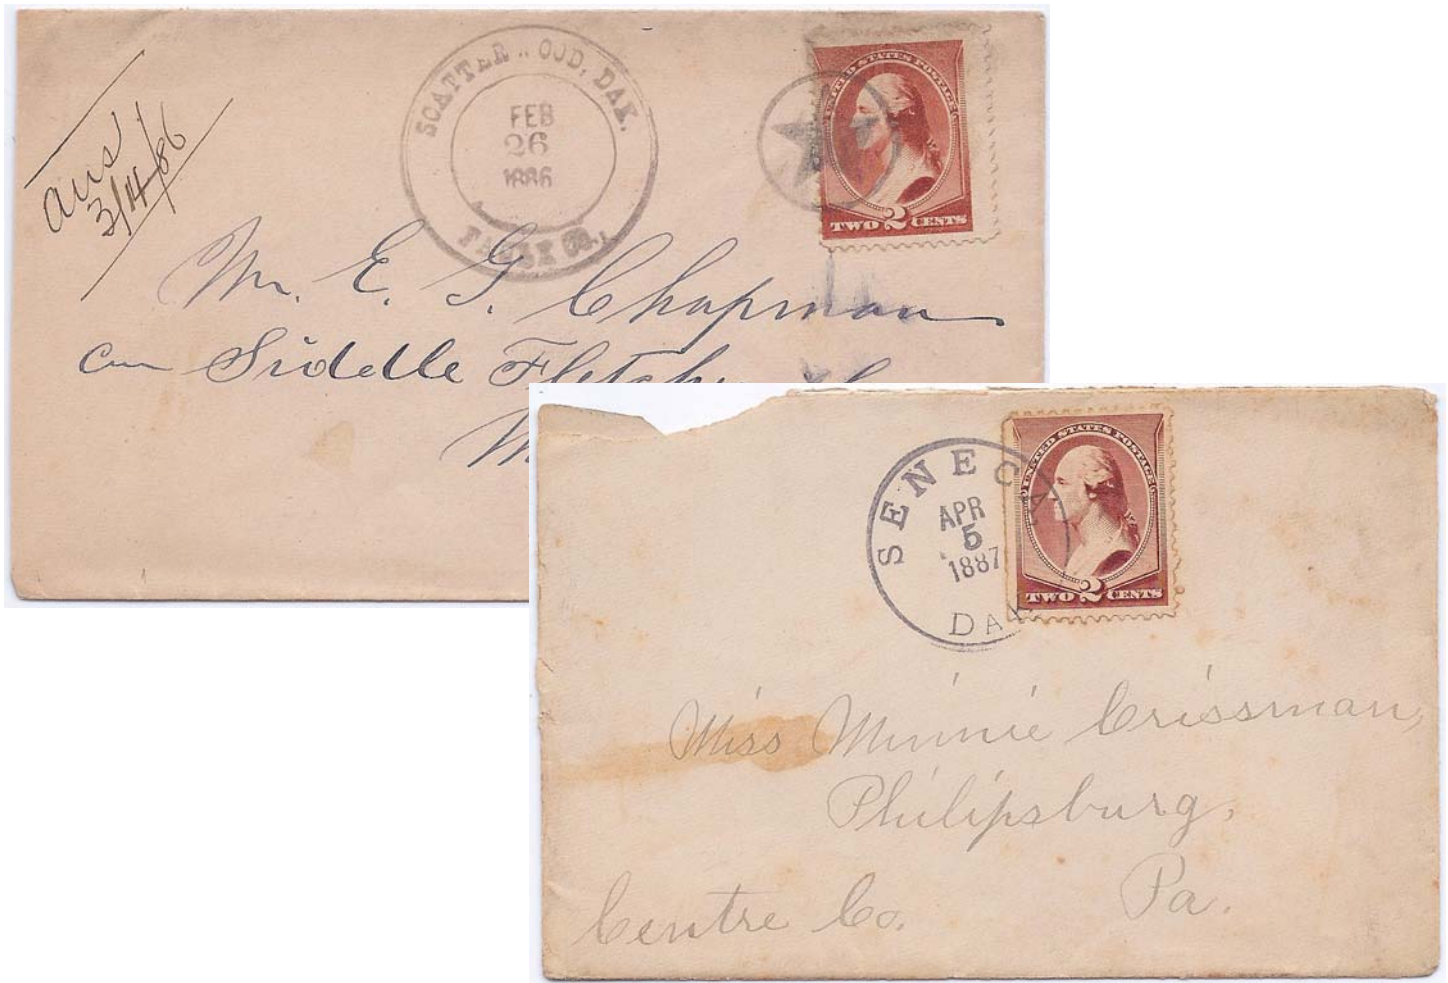 ans
3/14/86
SCATTER OOD, DAK.
FEB
26
1886
FAULK CO.,
UNITED STATES POSTAGE
TWO 2 CENTS
Mr. E. G. Chapman
Siddle Fletcher
SENECA
APR
5
1887
DAK
UNITED STATES POSTAGE
TWO 2 CENTS
Miss Minnie Crissman,
Philipsburg,
Pa.
Centre Co.